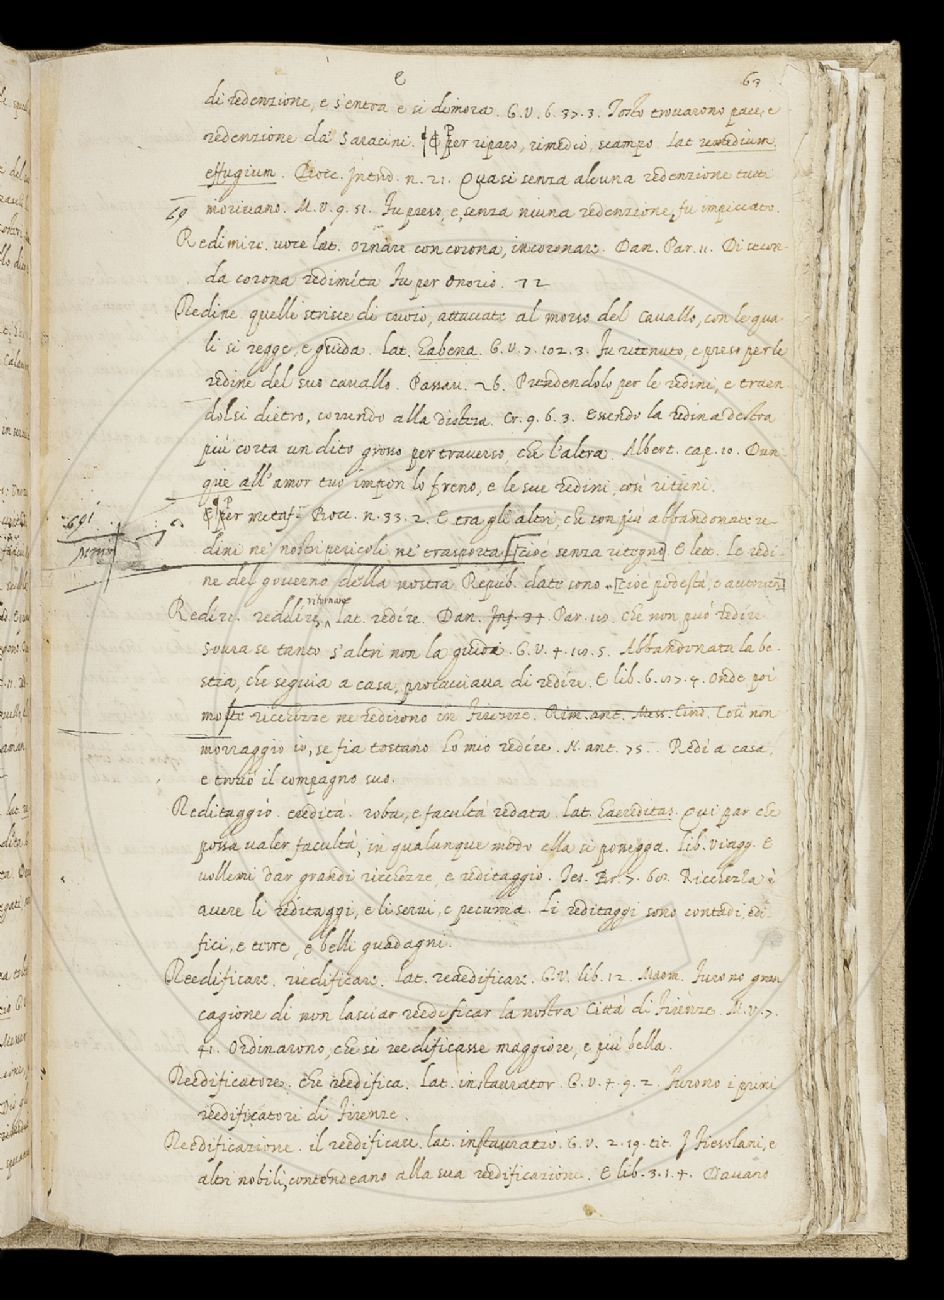 e 63
di redenzione, e s'entra e si dimora. G. V. 6. 37. 3. Tosto trovarono pace, e
redenzione da' Saracini. ¶ P per riparo, rimedio, scampo. Lat. remedium,
effugium. Bocc. Introd. n. 21. Quasi senza alcuna redenzione tutti
morivano. M. V. 9. 51. Fu preso, e, senza niuna redenzione, fu impiccato.
69
Redimire. voce lat. ornare con corona, incoronare. Dan. Par. 11. Di secon-
da corona redimíta Fu per Onorio. 72
Redine. quelle strisce di cuoio, attaccate al morso del cavallo, con le qua-
li si regge, e guida. Lat. Habena. G. V. 7. 102. 3. Fu ritenuto, e preso per le
redine del suo cavallo. Passav. 26. Prendendolo per le redini, e traen-
dolsi dietro, correndo alla distesa. Cr. 9. 6. 3. Essendo la redina destra
piú corta un dito grosso per traverso, che l'altra. Albert. cap. 10. Dun-
que all'amor tuo impon lo freno, e le sue redini, cosí ritieni.
¶ P per metaf. Bocc. n. 33. 2. E tra gli altri, che con piú abbandonate re-
691
dini ne' nostri pericoli ne trasporta [cioè senza ritegno] E lett. Le redi-
ne del governo della vostra Repub. date sono [cioè podestá, e autoritá]
Redire. reddíre, ritornare lat. redíre. Dan. Inf. 34 Par. Che non puó redire
Sovra se tanto s'altri non la guida. G. V. 4. 5. Abbandonata la be-
stia, che seguia a casa, procacciava di redíre. E lib. 6. 4. Onde poi
molte ricchezze ne redirono in Firenze. Rim. ant. Mess. Cino. Cosí non
morraggio io, se fia tostano Lo mio redíre. N. ant. 75. Redì a casa,
e trovó il compagno suo.
Reditaggio. ereditá. roba, e facultá redata. lat. Haereditas. Qui par che
possa valer facultá, in qualunque modo ella si possegga. Lib. Viagg. E
vollemi dar grandi ricchezze, e reditaggio. Tes. Br. 7. Ricchezza è
avere li reditaggi, e li servi, e pecunia. Li reditaggi sono contadi, edi-
fici, e terre, e belli guadagni.
Reedificare. riedificare. lat. reaedificare. G. V. lib. 12. Furono gran
cagione di non lasciar reedificar la nostra Cittá di Firenze. M. V. 7.
41. Ordinarono, che si reedificasse maggiore, e piú bella.
Reedificatore. che reedifica. Lat. instaurator. G. V. 4. 9. 2. Furono i primi
reedificatori di Firenze.
Reedificazione. il reedificare. lat. instauratio. G. V. 2. 19. tit. I Fiesolani, e
altri nobili, contendeano alla sua reedificazione. E lib. 3. 1. 4. Davano